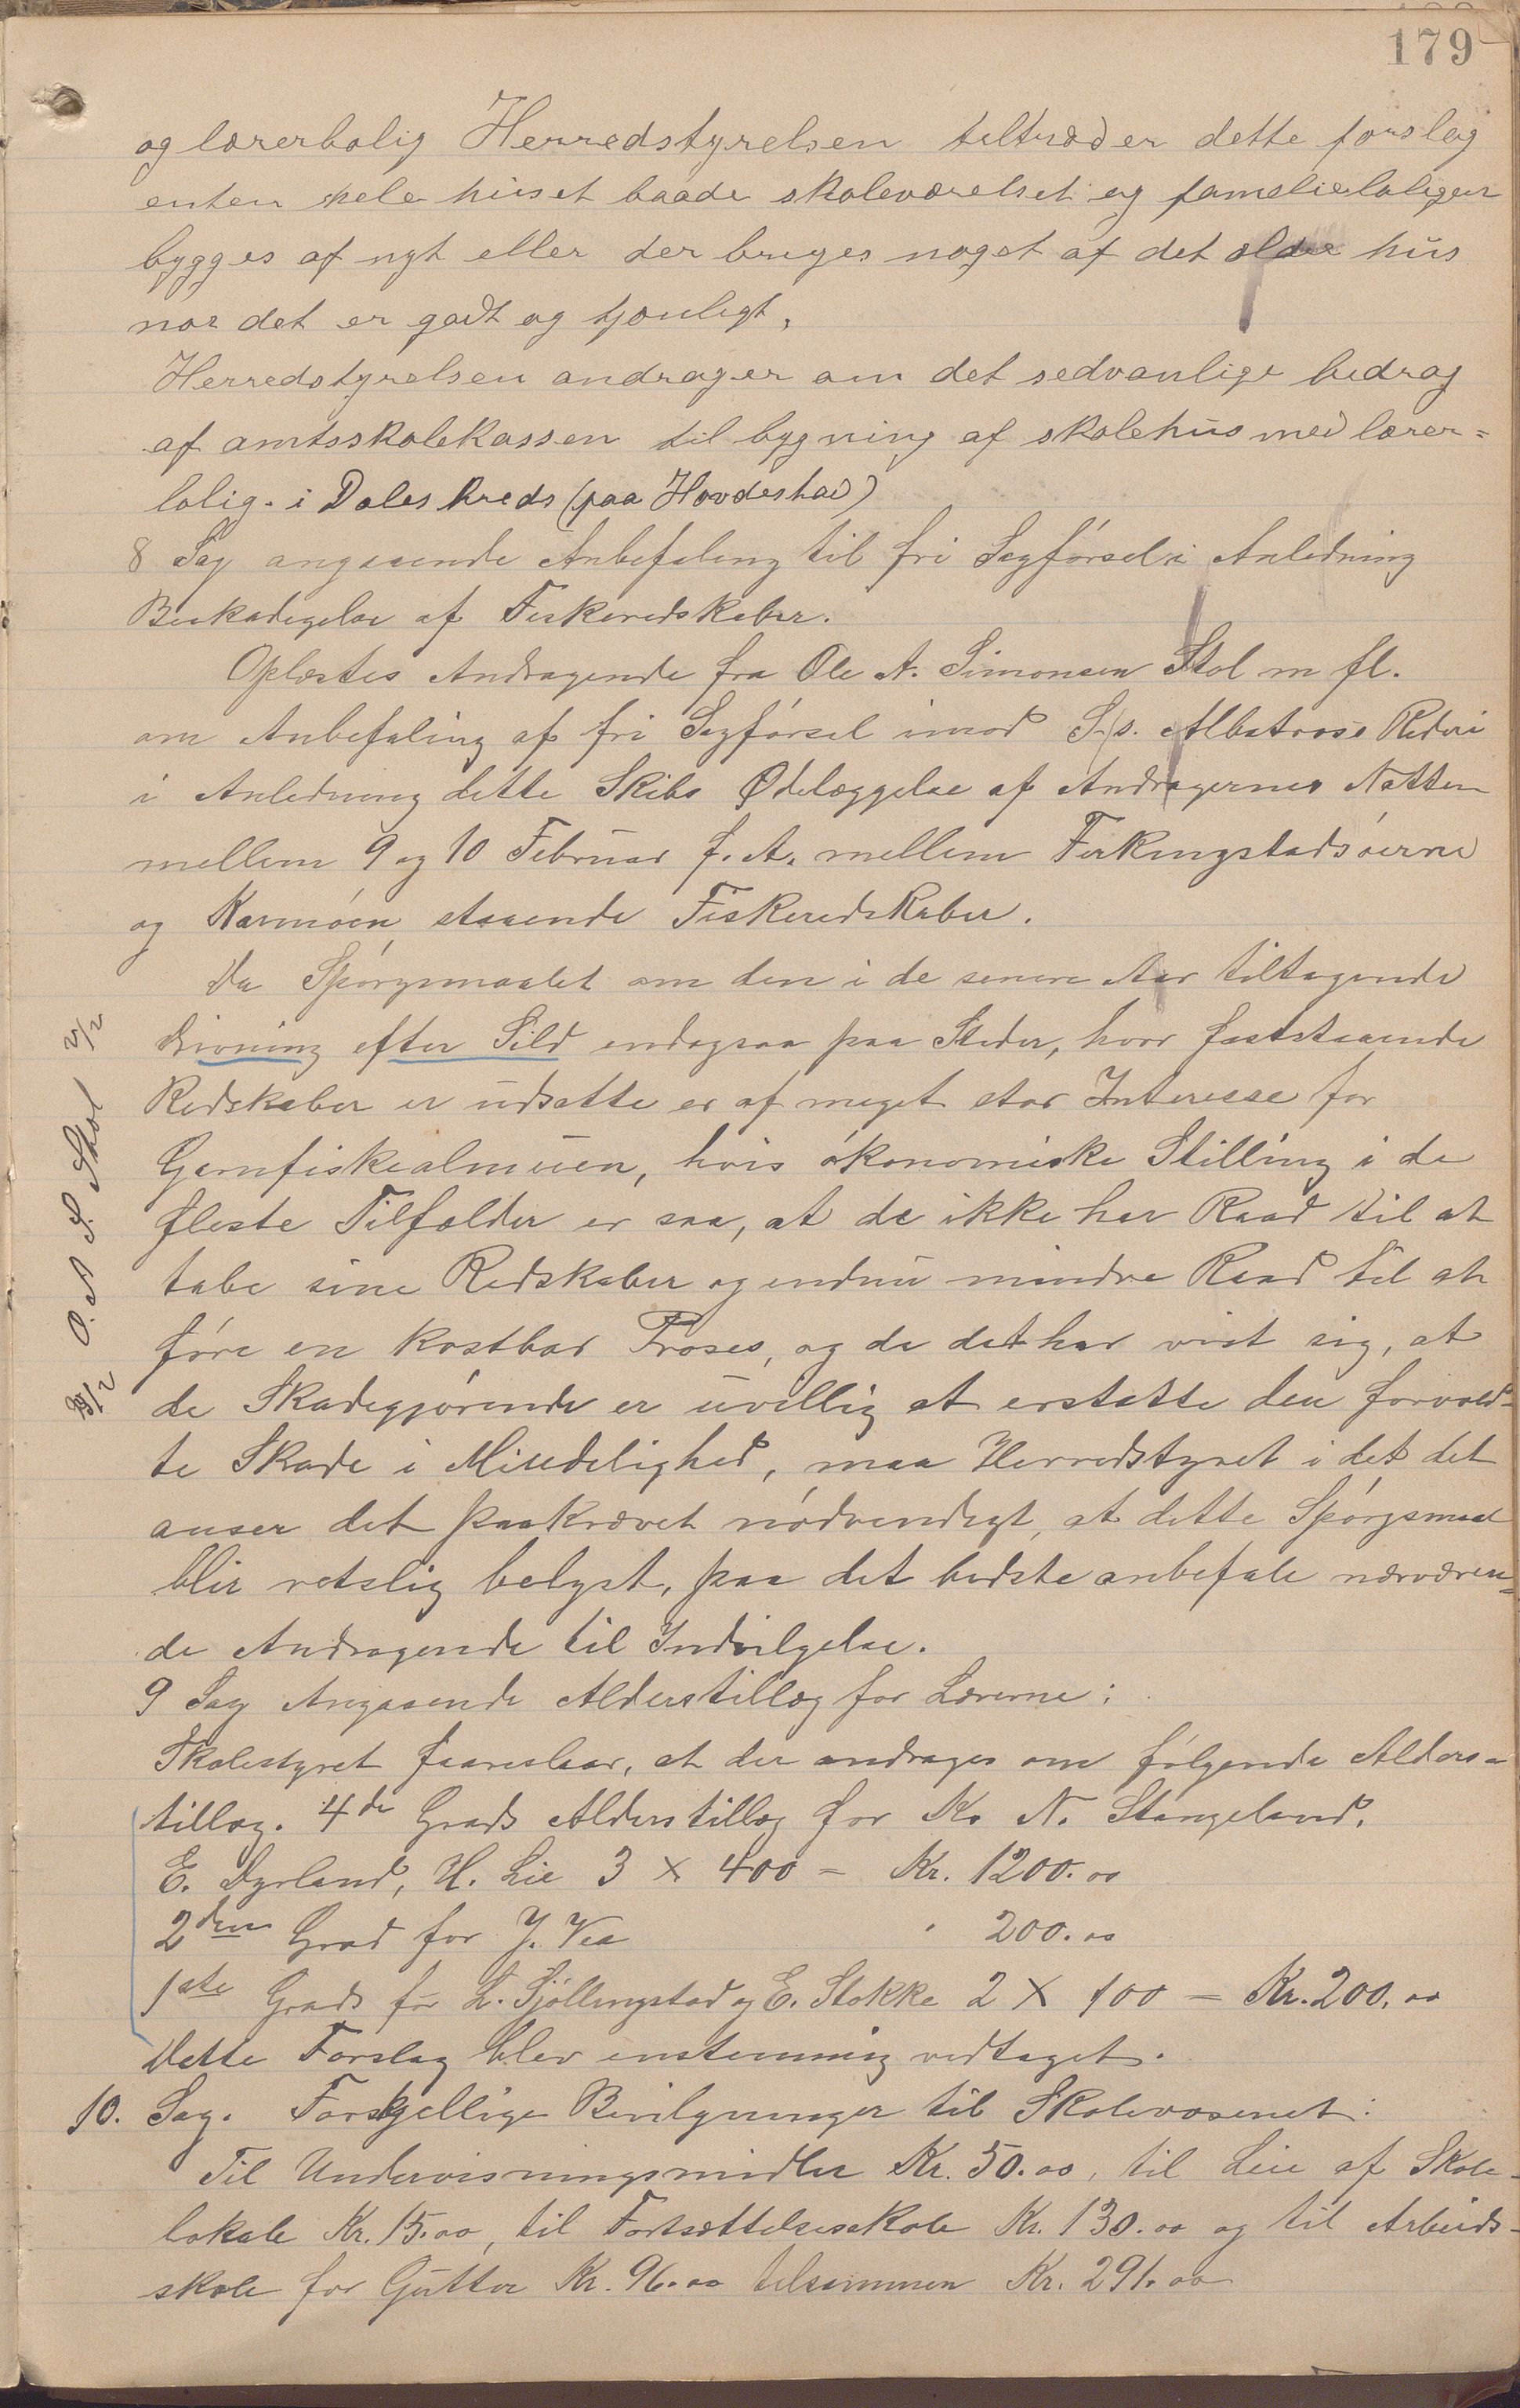 179
og lærerbolig Herredstyrelsen tiltræder dette forslag
enten hele huset baade skoleværelset og familieboligen
bygges af nyt eller der bruges noget af det ældre hus
nor det er godt og tjenligt,
Herredstyrelsen andrager om det sedvanlige bedrag
af amtsskolekassen til bygning af skolehus med lærer=
bolig. i Dales kreds (paa Hovdestad)
8 Sag angaaende Anbefaling til fri Sagførsel i Anledning
Beskadigelse af Fiskeredskaber.
Oplæstes Andragende fra Ole A. Simonsen Stol m fl.
om Anbefaling af fri Sagførsel imod S/s. Albatross Rederi
i Anledning dette Skibs Ødelæggelse af Andragernes Natten
mellem 9 og 10 Februar f. A. mellem Ferkingstadsøerne
og Karmøen staaende Fiskeredskaber.
Da Spørgsmaalet om den i de senere Aar tiltagende
Drivning efter Sild endogsaa paa Steder, hvor faststaaende
Redskaber er udsatte er af meget stor Interesse for
Garnfiskealmuen, hvis økonomiske Stilling i de
fleste Tilfælder er saa, at de ikke har Raad til at
tabe sine Redskaber og endnu mindre Raad til at
føre en kostbar Proses, og da det har vist sig, at
de Skadegjørende er uvillig at erstatte den forvold-
te Skade i Mindelighed, maa Herredstyret i det det
anser det paakrævet nødvendigt, at dette Spørgsmaal
blir retslig belyst, paa det bedste anbefale nærværen=
de Andragende til Indvilgelse.
O. A. S. Stol
9 Sag Angaaende Alderstillæg for Lærerne:
Skolestyret foareslaar, at der andrages om følgende Alders-
tillæg. 4de Grads Alderstillæg for K. N. Stangeland,
E. Dyrland, H. Lie 3 x 400 = Kr. 1200.00
2den Grad for J. Vea " 200.00
1ste Grads for L. Sjøllingstad og E. Stokke 2 X 100 = Kr. 200.00
Dette Forslag blev enstemmig vedtaget.
10. Sag. Forskjellige Bevilgninger til Skolevæsenet:
Til Undervisningsmidler Kr. 50.00, til Leie af Skole-
lokale Kr. 15.00, til Fortsættelsesskole Kr. 130.00 og til Arbeids-
skole for Gutter Kr. 96.00 tilsammen Kr. 291.00